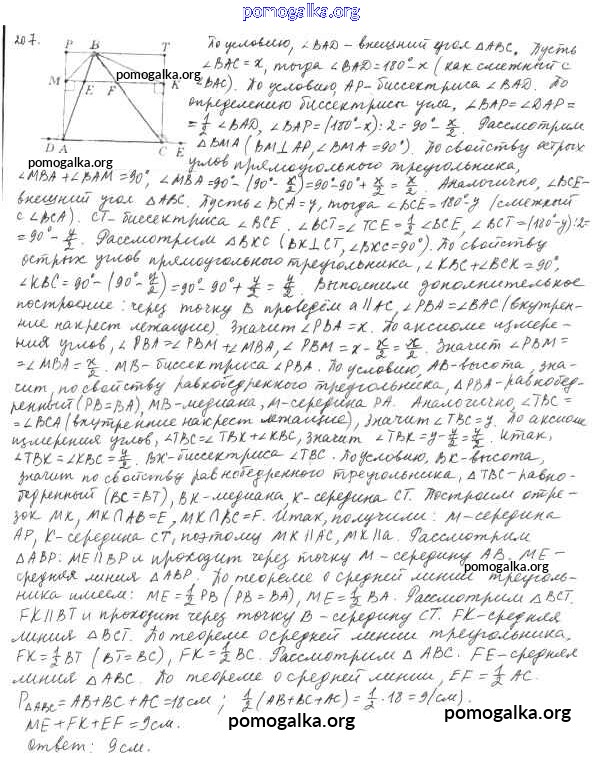 pomogalka.org
207.
P B T
M E F K
D A C E
По условию, ∠BAD - внешний угол △ABC. Пусть
∠BAC = x, тогда ∠BAD = 180° - x (как смежный с
pomogalka.org
∠BAC). По условию, AP - биссектриса ∠BAD. По
определению биссектрисы угла, ∠BAP = ∠DAP =
= 1/2 ∠BAD, ∠BAP = (180° - x) : 2 = 90° - x/2. Рассмотрим
△BMA (BM ⊥ AP, ∠BMA = 90°). По свойству острых
pomogalka.org
углов прямоугольного треугольника,
∠MBA + ∠BAM = 90°, ∠MBA = 90° - (90° - x/2) = 90° - 90° + x/2 = x/2. Аналогично, ∠BCE -
внешний угол △ABC. Пусть ∠BCA = y, тогда ∠BCE = 180° - y (смежный
с ∠BCA). CT - биссектриса ∠BCE. ∠BCT = ∠TCE = 1/2 ∠BCE, ∠BCT = (180° - y) : 2 =
= 90° - y/2. Рассмотрим △BKC (BK ⊥ CT, ∠BKC = 90°). По свойству
острых углов прямоугольного треугольника, ∠KBC + ∠BCK = 90°,
∠KBC = 90° - (90° - y/2) = 90° - 90° + y/2 = y/2. Выполним дополнительное
построение: через точку B проведём a ∥ AC, ∠PBA = ∠BAC (внутрен-
ние накрест лежащие). Значит ∠PBA = x. По аксиоме измере-
ния углов, ∠PBA = ∠PBM + ∠MBA, ∠PBM = x - x/2 = x/2. Значит ∠PBM =
= ∠MBA = x/2. MB - биссектриса ∠PBA. По условию, AB - высота, зна-
чит, по свойству равнобедренного треугольника, △PBA - равнобед-
ренный (PB = BA), MB - медиана, M - середина PA. Аналогично, ∠TBC =
= ∠BCA (внутренние накрест лежащие), значит ∠TBC = y. По аксиоме
измерения углов, ∠TBC = ∠TBK + ∠KBC, значит ∠TBK = y - y/2 = y/2. Итак,
∠TBK = ∠KBC = y/2. BK - биссектриса ∠TBC. По условию, BK - высота,
значит по свойству равнобедренного треугольника, △TBC - равно-
бедренный (BC = BT), BK - медиана, K - середина CT. Построим отре-
зок MK, MK ∩ AB = E, MK ∩ BC = F. Итак, получили: M - середина
AP, K - середина CT, поэтому MK ∥ AC, MK ∥ a. Рассмотрим
△ABP: ME ∥ BP и проходит через точку M - середину AB. ME -
средняя линия △ABP. По теореме о средней линии треуголь-
pomogalka.org
ника имеем: ME = 1/2 PB (PB = BA), ME = 1/2 BA. Рассмотрим △BCT.
FK ∥ BT и проходит через точку B - середину CT. FK - средняя
линия △BCT. По теореме о средней линии треугольника,
FK = 1/2 BT (BT = BC), FK = 1/2 BC. Рассмотрим △ABC. FE - средняя
линия △ABC. По теореме о средней линии, EF = 1/2 AC.
P△ABC = AB + BC + AC = 18 см; 1/2 (AB + BC + AC) = 1/2 · 18 = 9 (см).
ME + FK + EF = 9 см.
pomogalka.org pomogalka.org
Ответ: 9 см.